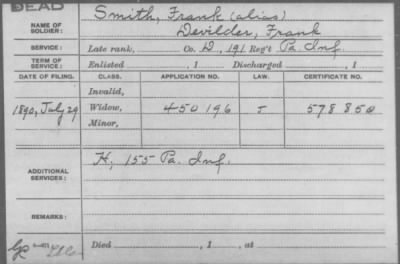 DEAD
Smith, Frank (alias)
NAME OF SOLDIER: Devilder, Frank
SERVICE: Late rank, Co. D, 191 Reg't Pa. Inf.
TERM OF SERVICE: Enlisted , 1 Discharged , 1
DATE OF FILING. CLASS. APPLICATION NO. LAW. CERTIFICATE NO.
Invalid,
1890, July 29 Widow, 450196 J 578850
Minor,
H, 155 Pa. Inf.
ADDITIONAL SERVICES:
REMARKS:
Died , 1 , at